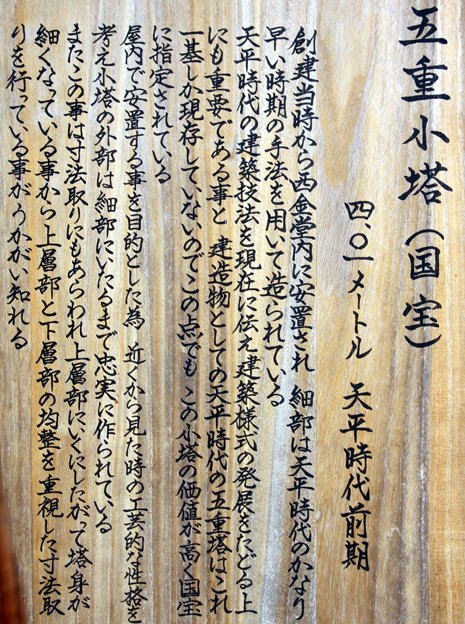 五重小塔（国宝）
四、〇一メートル　天平時代前期
創建当時から西金堂内に安置され　細部は天平時代のかなり
早い時期の手法を用いて造られている
天平時代の建築技法を現在に伝え建築様式の発展をたどる上
にも重要である事と　建造物としての天平時代の五重塔はこれ
一基しか現存していないのでこの点でも　この小塔の価値が高く国宝
に指定されている
屋内で安置する事を目的とした為　近くから見た時の工芸的な性格を
考え小塔の外部は細部にいたるまで忠実に作られている
またこの事は寸法取りにもあらわれ上層部にいくにしたがって塔身が
細くなっている事から上層部と下層部の均整を重視した寸法取
りを行っている事がうかがい知れる